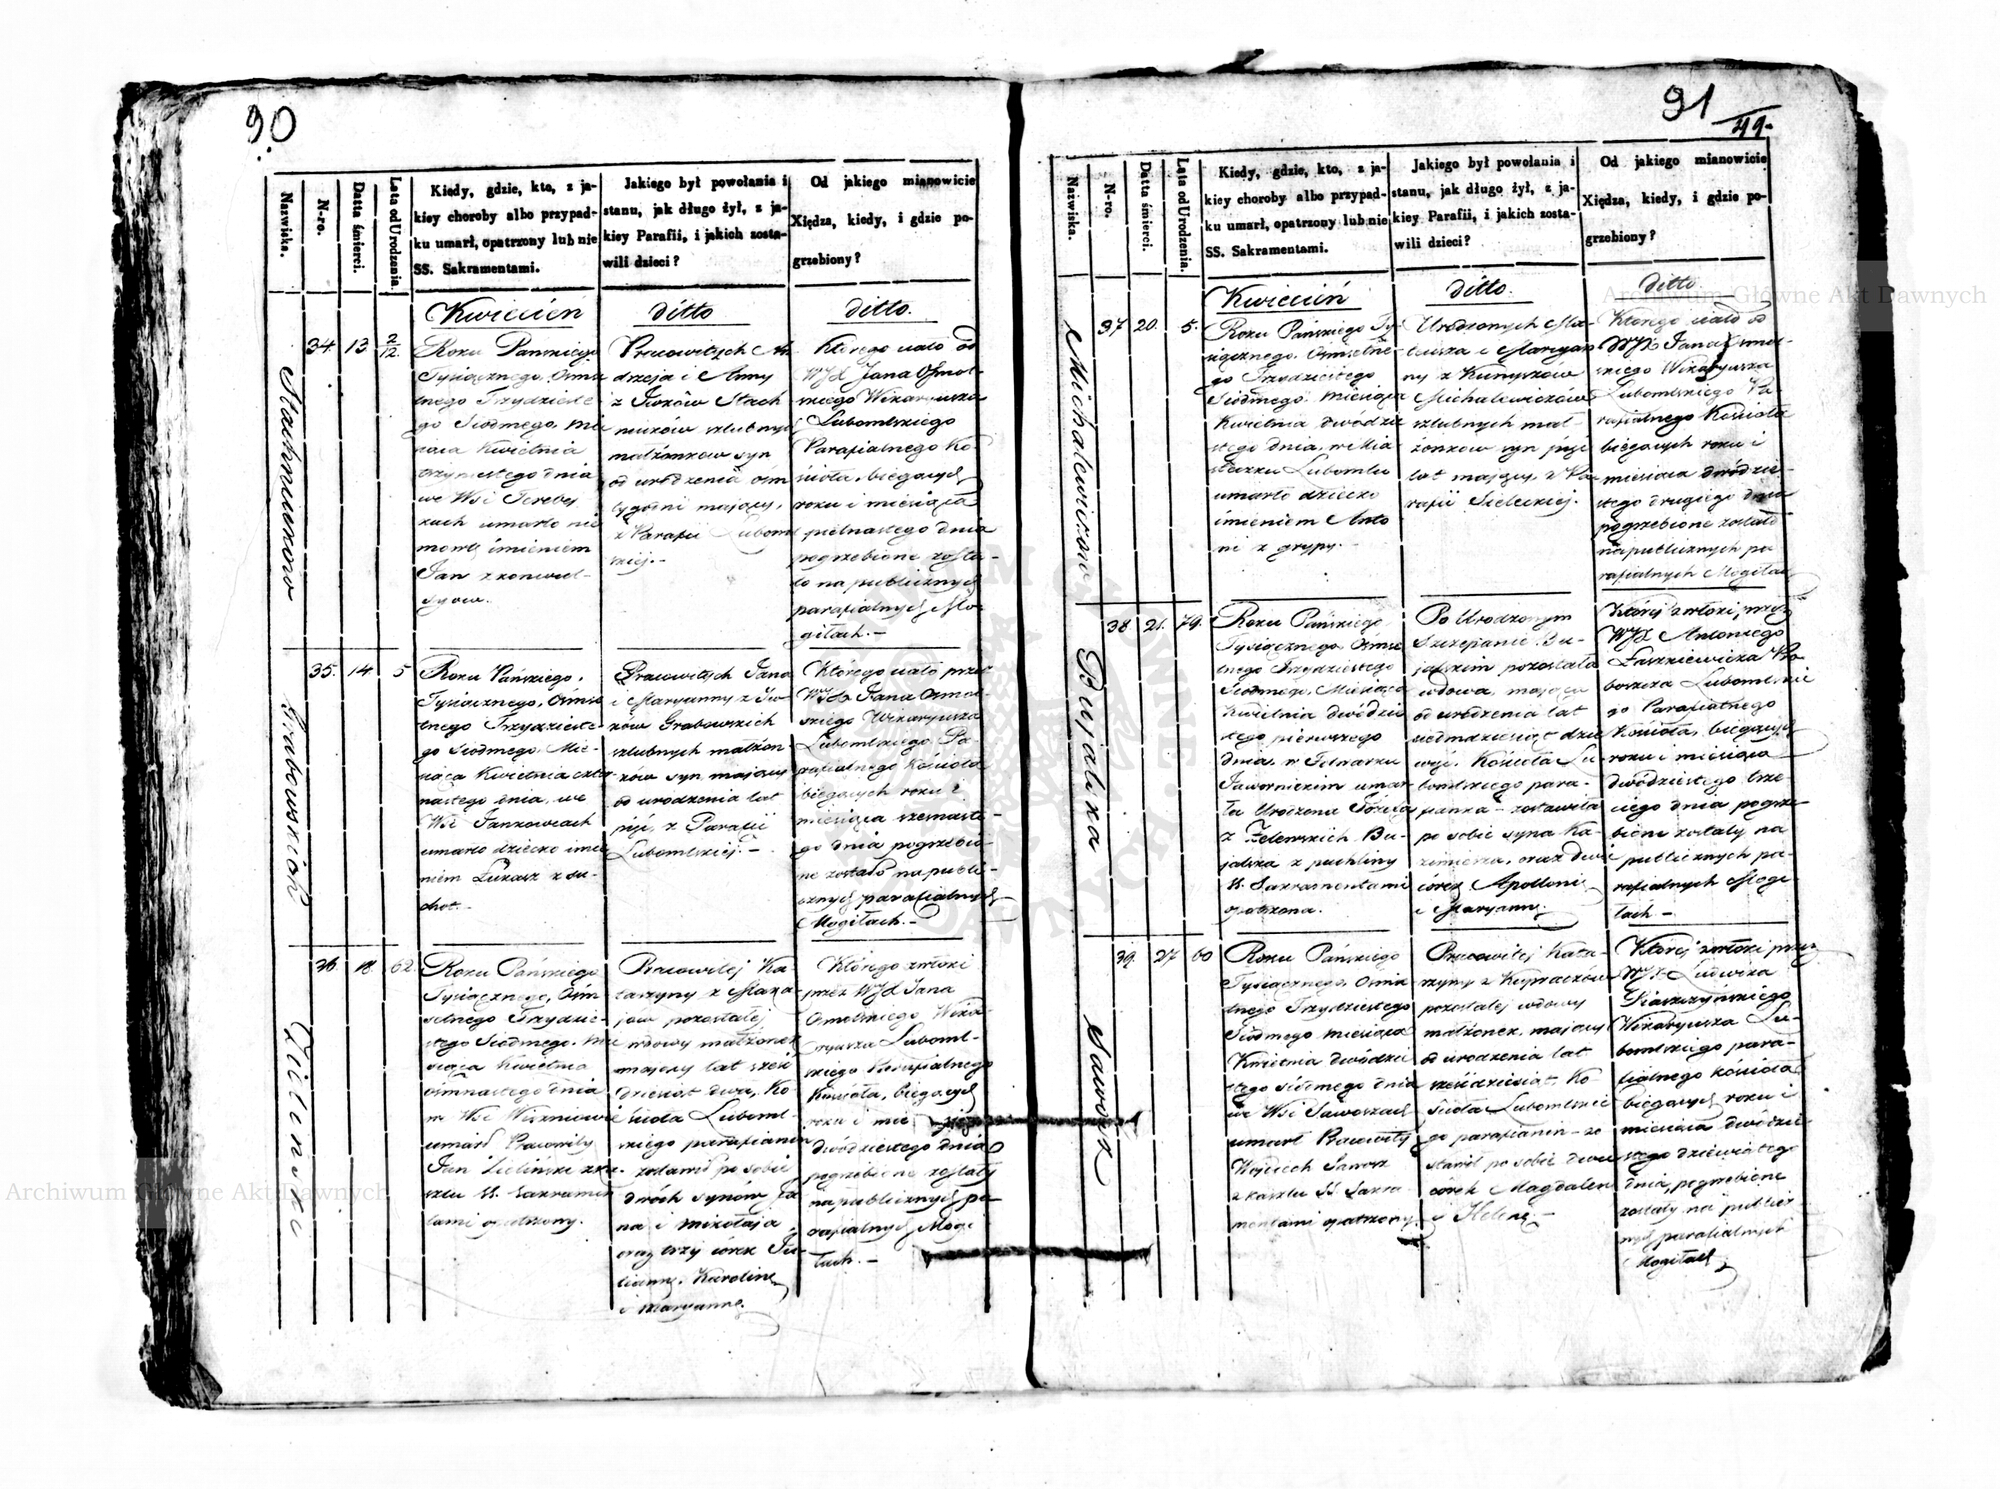 90
Nazwiska.
N-ro.
Datta śmierci.
Lata od Urodzenia.
Kiedy, gdzie, kto, z ja-
kiey choroby albo przypad-
ku umarł, opatrzony lub nie
SS. Sakramentami.
Jakiego był powołania i
stanu, jak długo żył, z ja-
kiey Parafii, i jakich zosta-
wili dzieci?
Od jakiego mianowicie
Xiędza, kiedy, i gdzie po-
grzebiony?
Kwiecień
ditto
ditto.
34. 13 2/12
Roku Pańskiego
Tysiącznego, Ośmse
tnego Trzydzieste
go Siódmego, Mie
siąca Kwietnia
trzynastego dnia
we Wsi Terebey
kach umarło nie
mowlę imieniem
Jan z konwul-
syow.
Pracowitych An
drzeja i Anny
z
małżonków syn
od urodzenia ośm
tygodni mający,
z Parafii Luboml
skiej.-
Którego ciało od
WJX Jana Osmol-
skiego Wikaryusza
Lubomlskiego
Parafialnego Ko-
ścioła, bieżących
roku i miesiąca
pietnastego dnia
pogrzebione zosta-
ło na publicznych
parafialnych Mo-
giłach.-
35. 14 5
Grabowskich
Roku Pańskiego,
Tysiącznego, Ośmse
tnego Trzydzieste
go Siódmego, Mie-
siąca Kwietnia czter
nastego dnia, we
Wsi Jankowcach
umarło dziecko imie
niem Łukasz z su-
chot.-
Pracowitych Jana
i Maryanny z
Grabowskich
ślubnych małżon
ków syn mający
od urodzenia lat
pięć, z Parafii
Lubomlskiej.-
Którego ciało przez
WJX Jana Osmol-
skiego Wikaryusza
Lubomlskiego Pa-
rafialnego Kościoła
bieżących roku i
miesiąca szesnaste-
go dnia pogrzebio-
ne zostało na publi-
cznych parafialnych
Mogiłach.-
36. 18. 62.
Zieliński
Roku Pańskiego
Tysiącznego, Ośm
setnego Trzydzie-
stego Siódmego, Mie
siąca Kwietnia
ośmnastego dnia
w Wsi
umarł Pracowity
Jan Zieliński z ka-
szlu SS. Sakramen
tami opatrzony.
Pracowitej Ka-
tarzyny z
pozostałej
wdowy małżonek
mający lat sześć
dziesiąt dwa, Ko-
ścioła Luboml-
skiego parafianin
zostawił po sobie
dwóch synów, Ja
na i Mikołaja
oraz trzy córek Ju-
liannę, Karolinę
i Maryannę.
Którego zwłoki
przez WJX Jana
Osmolskiego Wika-
ryusza Luboml-
skiego Parafialnego
Kościoła, bieżących
roku i mie
dwódziestego dnia
pogrzebione zostały
na publicznych pa-
rafialnych Mogi
łach.-
91
49.
Nazwiska.
N-ro.
Datta śmierci.
Lata od Urodzenia.
Kiedy, gdzie, kto, z ja-
kiey choroby albo przypad-
ku umarł, opatrzony lub nie
SS. Sakramentami.
Jakiego był powołania i
stanu, jak długo żył, z ja-
kiey Parafii, i jakich zosta-
wili dzieci?
Od jakiego mianowicie
Xiędza, kiedy, i gdzie po-
grzebiony?
Kwiecień
ditto.
ditto.
37 20. 5.
Michalewiczow
Roku Pańskiego Ty-
siącznego, Ośmsetne
go Trzydziestego
Siódmego, Miesiąca
Kwietnia dwódzie
stego dnia, w Mia
steczku Lubomlu
umarło dziecko
imieniem Anto
ni z grypy.-
Urodzonych Ma-
teusza i Maryan
ny z
Michalewiczów
szlubnych mał-
żonków syn pięć
lat mający, z Pa
rafii Sieleckiej.
Którego ciało od
WJX Jana Osmol-
skiego Wikaryusza
Lubomlskiego Pa-
rafialnego Kościoła
bieżących roku i
miesiąca dwódzie-
stego drugiego dnia
pogrzebione zostało
na publicznych pa
rafialnych Mogiłach
38. 21. 79.
Bujalska
Roku Pańskiego
Tysiącznego Ośmse
tnego Trzydziestego
Siódmego, Miesiąca
Kwietnia dwódzie
stego pierwszego
dnia, w Folwarku
umar-
ła Urodzona Józefa
z Zelewskich Bu-
jalska z puchliny
SS. Sakramentami
opatrzona.
Po Urodzonym
Szczepanie Bu-
jalskim pozostała
wdowa, mająca
od urodzenia lat
siedmdziesiąt dzie
więć, Kościoła Lu-
bomlskiego para-
fianka - zostawiła
po sobie syna Ka-
zimierza, oraz dwie
córek Apollonię
i Maryannę.
Której zwłoki, przez
WJX Antoniego
Laszkiewicza Pro-
boszcza Lubomlskie
go Parafialnego
Kościoła, bieżących
roku i miesiąca
dwódziestego trze
ciego dnia pogrze-
bione zostały na
publicznych pa-
rafialnych Mogi
łach -
39. 27 60
Sawosz
Roku Pańskiego
Tysiącznego, Ośmse
tnego Trzydziestego
Siódmego Miesiąca
Kwietnia dwódzie
stego siódmego dnia
we Wsi Sawoszach
umarł Pracowity
Wojciech Sawosz
z kaszlu SS Sakra-
mentami opatrzony.
Pracowitej Kata-
rzyny z
pozostałej wdowy
małżonek, mający
od urodzenia lat
sześćdziesiąt, Ko-
ścioła Lubomlskie
go parafianin - zo
stawił po sobie dwie
córek Magdalenę
i Helenę.-
Której zwłoki przez
WJX Ludwika
Wikaryusza Lu-
bomlskiego para-
fialnego kościoła
bieżących roku i
miesiąca dwódzie-
stego dziewiątego
dnia, pogrzebione
zostały na publicz
nych parafialnych
Mogiłach
Archiwum Główne Akt Dawnych
Archiwum Główne Akt Dawnych